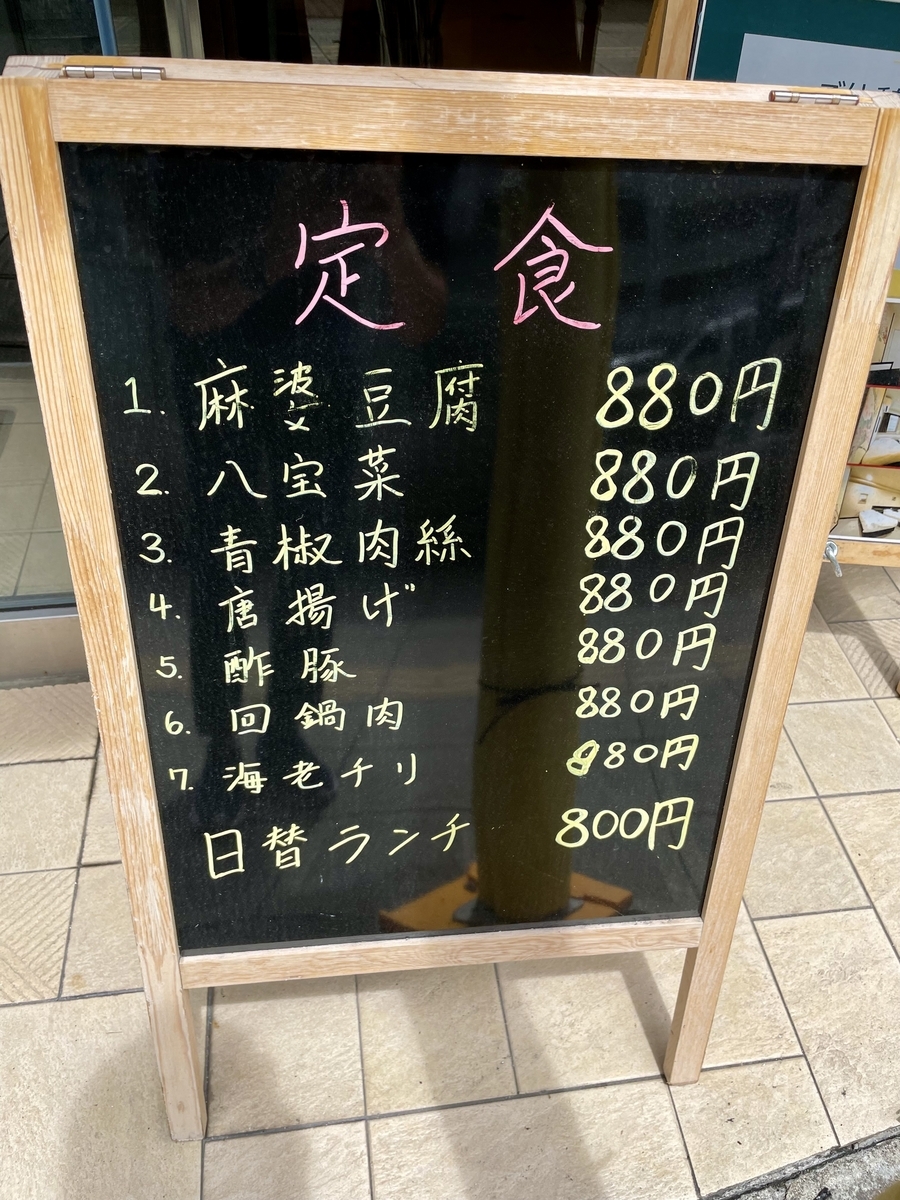 定食
1. 麻婆豆腐 880円
2. 八宝菜 880円
3. 青椒肉絲 880円
4. 唐揚げ 880円
5. 酢豚 880円
6. 回鍋肉 880円
7. 海老チリ 980円
日替ランチ 800円